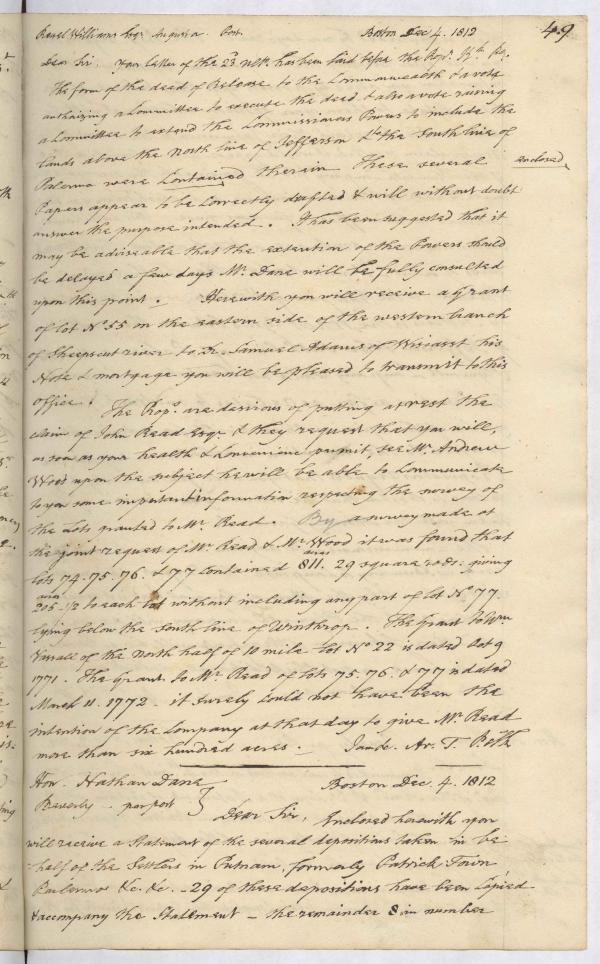 Reuel Williams Esqr Augusta Post. Boston Dec 4. 1812 49
Dear Sir. Your letter of the 23d ulto. has been laid before the Propr. Kc. Po.
The form of the deed of Release to the Commonwealth & a vote
authorizing a Committee to execute the deed & also a vote raising
a Committee to extend the Commissioners Powers to include the
lands above the north line of Jefferson & to the South line of
Palermo were Contained therein These several enclosed
Papers appear to be correctly drafted & will without doubt
answer the purpose intended. It has been suggested that it
may be adviseable that the extention of the Powers should
be delayed a few days Mr. Dane will be fully consulted
upon this point. Herewith you will receive a Grant
of lot No 55 on the eastern side of the western branch
of Sheepscut river to Dr. Samuel Adams of Wiscasst his
Note & mortgage you will be pleased to transmit to this
office. The Props. are desirous of putting at rest the
claim of John Read Esqr. & they request that you will,
as soon as your health & Convenience permit, see Mr. Andrew
Wood upon the subject he will be able to Communicate
to you some important information respecting the survey of
the Lots granted to Mr. Read. By a survey made at
the joint request of Mr Read & Mr Wood it was found that
lots 74. 75. 76. & 77 contained 811 acres. 29 square rods. giving
205 1/2 acres to each lot without including any part of lot No 77
lying below the South line of Winthrop. The Grant to Wm
Vassall of the North half of 10 mile Lot No 22 is dated Oct 9
1771. The grant to Mr. Read of lots 75. 76. & 77 is dated
March 11. 1772. it surely could not have been the
intention of the Company at that day to give Mr. Read
more than six hundred acres. Ar. T.
Hon. Nathan Dane Boston Dec. 4. 1812
Beverly. per post } Dear Sir, Enclosed herewith you
will receive a Statement of the several depositions taken in be-
half of the Settlers in Putnam, formerly Patrick Town
Parlermo &c. &c. - 29 of these depositions have been Copied
& accompany the Statement - the remainder 8 in number